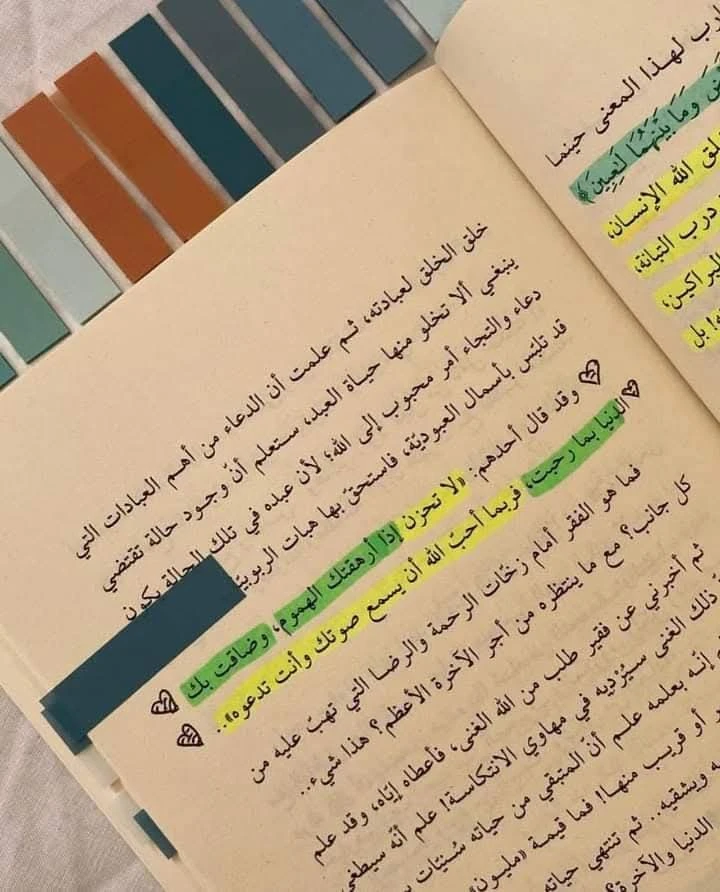 رب لهذا المعنى حينما
ض وَمَا بَيْنَهُمَا لَعِبِينَ﴾
لق الله الإنسان،
درب التبانة،
البراكين،
ه! بل
خلق الخلق لعبادته، ثم علمت أن الدعاء من أهم العبادات التي
ينبغي ألا تخلو منها حياة العبد، ستعلم أنّ وجود حالة تقتضي
دعاء والتجاء أمر محبوب إلى الله؛ لأن عبده في تلك الحالة يكون
قد تلبّس بأسمال العبوديّة، فاستحقّ بها هبات الربوبية
وقد قال أحدهم: «لا تحزن إذا أرهقتك الهموم، وضاقت بك
الدنيا بما رحبت، فربما أحبّ الله أن يسمع صوتك وأنت تدعوه»..
فما هو الفقر أمام زخّات الرحمة والرضا التي تهبّ عليه من
كل جانب؟ مع ما ينتظره من أجر الآخرة الأعظم؟ هذا شيء..
ثم أخبرني عن فقير طلب من الله الغنى، فأعطاه إيّاه، وقد علم
ذلك الغنى سيُرْديه في مهاوي الانتكاسة! علم أنّه سيطغى
إنّه بعلمه علم أنّ المتبقي من حياته سُنَيّات
أو قريب منها! فما قيمة «مليون»
ه ويشقيه.. ثم تنتهي حياته
الدنيا والآخرة؟